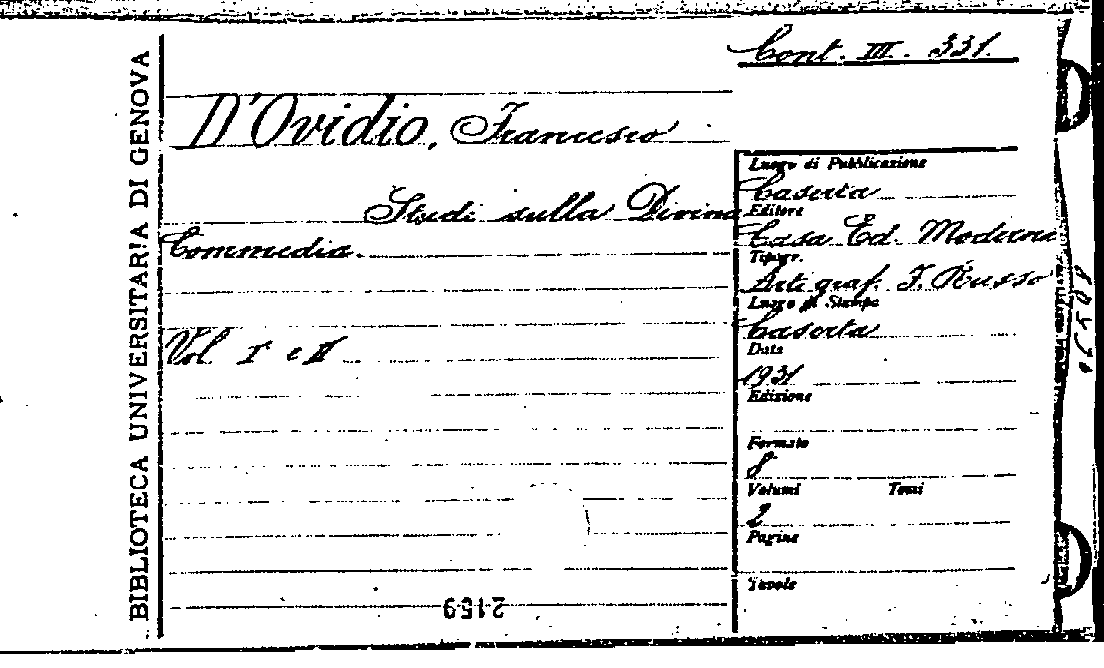 BIBLIOTECA UNIVERSITARIA DI GENOVA
Cont. III. 331.
D'Ovidio, Francesco
Studi sulla Divina
Commedia.
Vol. I e II
Luogo di Pubblicazione
Caserta
Editore
Casa Ed. Moderna
Tipogr.
Arti graf. F. Russo
Luogo di Stampa
Caserta
Data
1931
Edizione
Formato
8
Volumi Tomi
2
Pagine
Tavole
2159